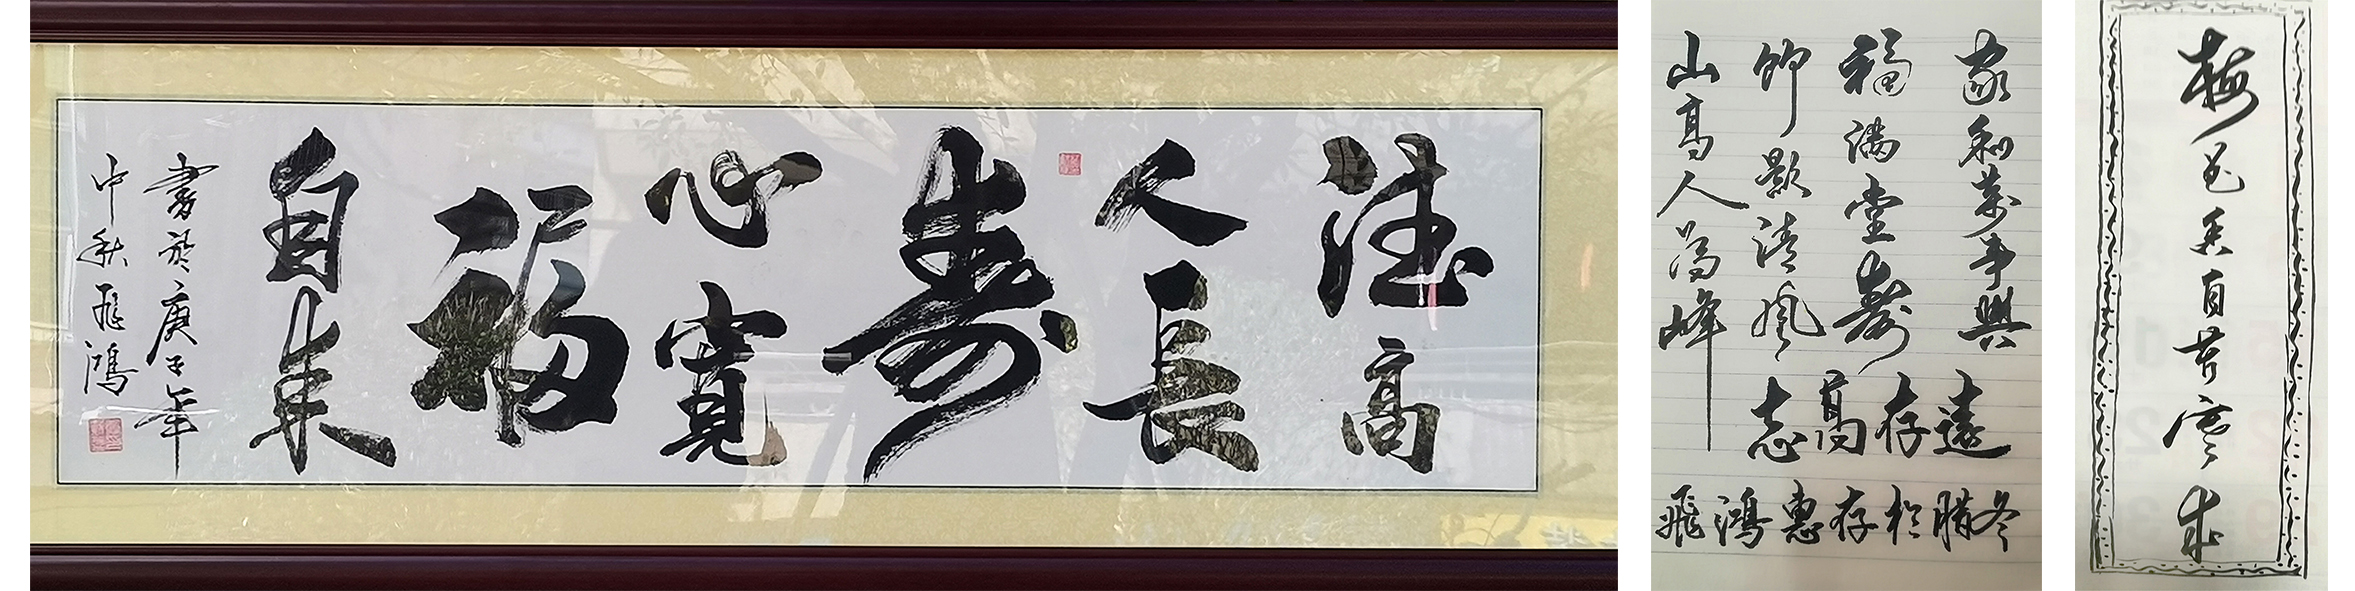 德高
人長
壽
心寬
福
自来
書於庚子年
中秋飛鴻
家和萬事興
福满堂壽
清風
山高人為峰
志高存遠
飛鴻惠存於腊冬
梅花香自苦寒来